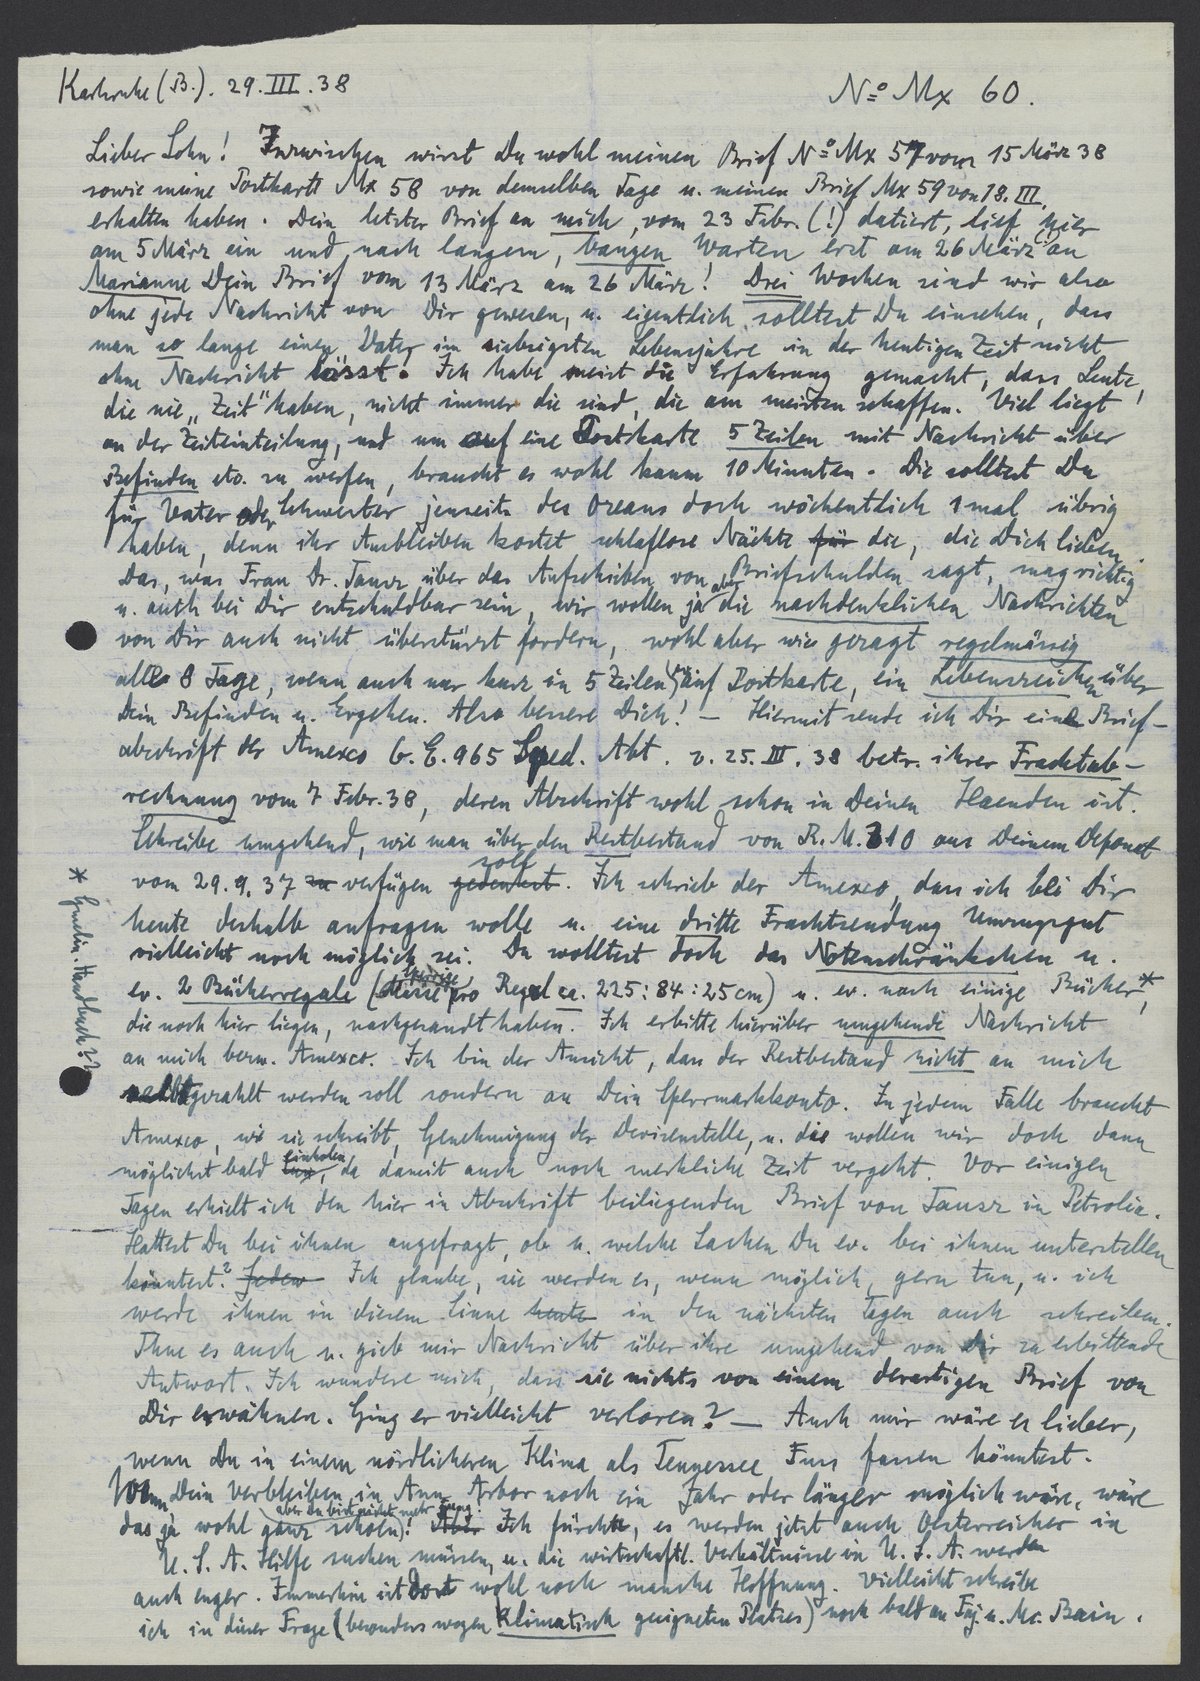 Karlsruhe (B.). 29. III. 38
No Mx 60.
Lieber Sohn! Inzwischen wirst Du wohl meinen Brief No Mx 57 vom 15 März 38
sowie meine Postkarte Mx 58 von demselben Tage u. meinen Brief Mx 59 von 18. III.
erhalten haben. Dein letzter Brief an mich, vom 23 Febr. (!) datiert, lief hier
am 5 März ein und nach langem, bangen Warten erst am 26 März (!) an
Marianne Dein Brief vom 13 März am 26 März! Drei Wochen sind wir also
ohne jede Nachricht von Dir gewesen, u. eigentlich solltest Du einsehen, dass
man so lange einen Vater im siebzigsten Lebensjahre in der heutigen Zeit nicht
ohne Nachricht lässt. Ich habe meist die Erfahrung gemacht, dass Leute,
die nie "Zeit" haben, nicht immer die sind, die am meisten schaffen. Viel liegt
an der Zeiteinteilung, und um auf eine Postkarte 5 Zeilen mit Nachricht über
Befinden etc. zu werfen, braucht es wohl kaum 10 Minuten. Die solltest Du
für Vater oder Schwester jenseits des Ozeans doch wöchentlich 1 mal übrig
haben, denn ihr Ausbleiben kostet schlaflose Nächte für die, die Dich lieben.
Das, was Frau Dr. Tausz über das Aufschieben von Briefschulden sagt, mag richtig
u. auch bei Dir entschuldbar sein, wir wollen ja aber die nachdenklichen Nachrichten
von Dir auch nicht überstürzt fordern, wohl aber wie gesagt regelmässig
alle 8 Tage, wenn auch nur kurz in 5 Zeilen auf Postkarte, ein Lebenszeichen über
Dein Befinden u. Ergehen. Also bessere Dich! – Hiermit sende ich Dir eine Brief-
abschrift der Amexco G. E. 965 Sped. Abt. v. 25. III. 38 betr. ihrer Frachtab-
rechnung vom 7 Febr. 38, deren Abschrift wohl schon in Deinen Haenden ist.
Schreibe umgehend, wie man über den Restbestand von R. M. 310 aus Deinem Deponat
vom 29. 9. 37 zu verfügen gedenkst soll. Ich schrieb der Amexco, dass ich bei Dir
heute deshalb anfragen wolle u. eine dritte Frachtsendung Umzugsgut
vielleicht noch möglich sei. Du wolltest doch das Notenschränkchen u.
ev. 2 Bücherregale (Masse pro Regal ca. 225 : 84 : 25 cm) u. ev. noch einige Bücher*,
die noch hier liegen, nachgesandt haben. Ich erbitte hierüber umgehende Nachricht
an mich bezw. Amexco. Ich bin der Ansicht, dass der Restbestand nicht an mich
gezahlt werden soll sondern an Dein Sperrmarkkonto. In jedem Falle braucht
Amexco, wie sie schreibt, Genehmigung der Devisenstelle, u. die wollen wir doch dann
möglichst bald einholen, da damit auch noch merkliche Zeit vergeht. Vor einigen
Tagen erhielt ich den hier in Abschrift beiliegenden Brief von Tausz in Petrolia.
Hattest Du bei ihnen angefragt, ob u. welche Sachen Du ev. bei ihnen unterstellen
könntest? Jedew Ich glaube, sie werden es, wenn möglich, gern tun, u. ich
werde ihnen in diesem Sinne heute in den nächsten Tagen auch schreiben.
Thue es auch u. gieb mir Nachricht über ihre umgehend von Dir zu erbittende
Antwort. Ich wundere mich, dass sie nichts von einem derartigen Brief von
Dir erwähnen. Ging er vielleicht verloren? – Auch mir wäre es lieber,
wenn Du in einem nördlicheren Klima als Tennessee Fuss fassen könntest.
Wenn Dein Verbleiben in Ann Arbor noch ein Jahr oder länger möglich wäre, wäre
aber Du bist nicht mehr jung.
das ja wohl ganz schön)! Aber Ich fürchte, es werden jetzt auch Oesterreicher in
U. S. A. Hilfe suchen müssen, u. die wirtschaftl. Verhältnisse in U. S. A. werden
auch enger. Immerhin ist dort wohl noch manche Hoffnung. Vielleicht schreibe
ich in dieser Frage (besonders wegen klimatisch geeigneten Platzes) noch bald an Faj. u. Mc. Bain.
* Gmelin. Handbuch??